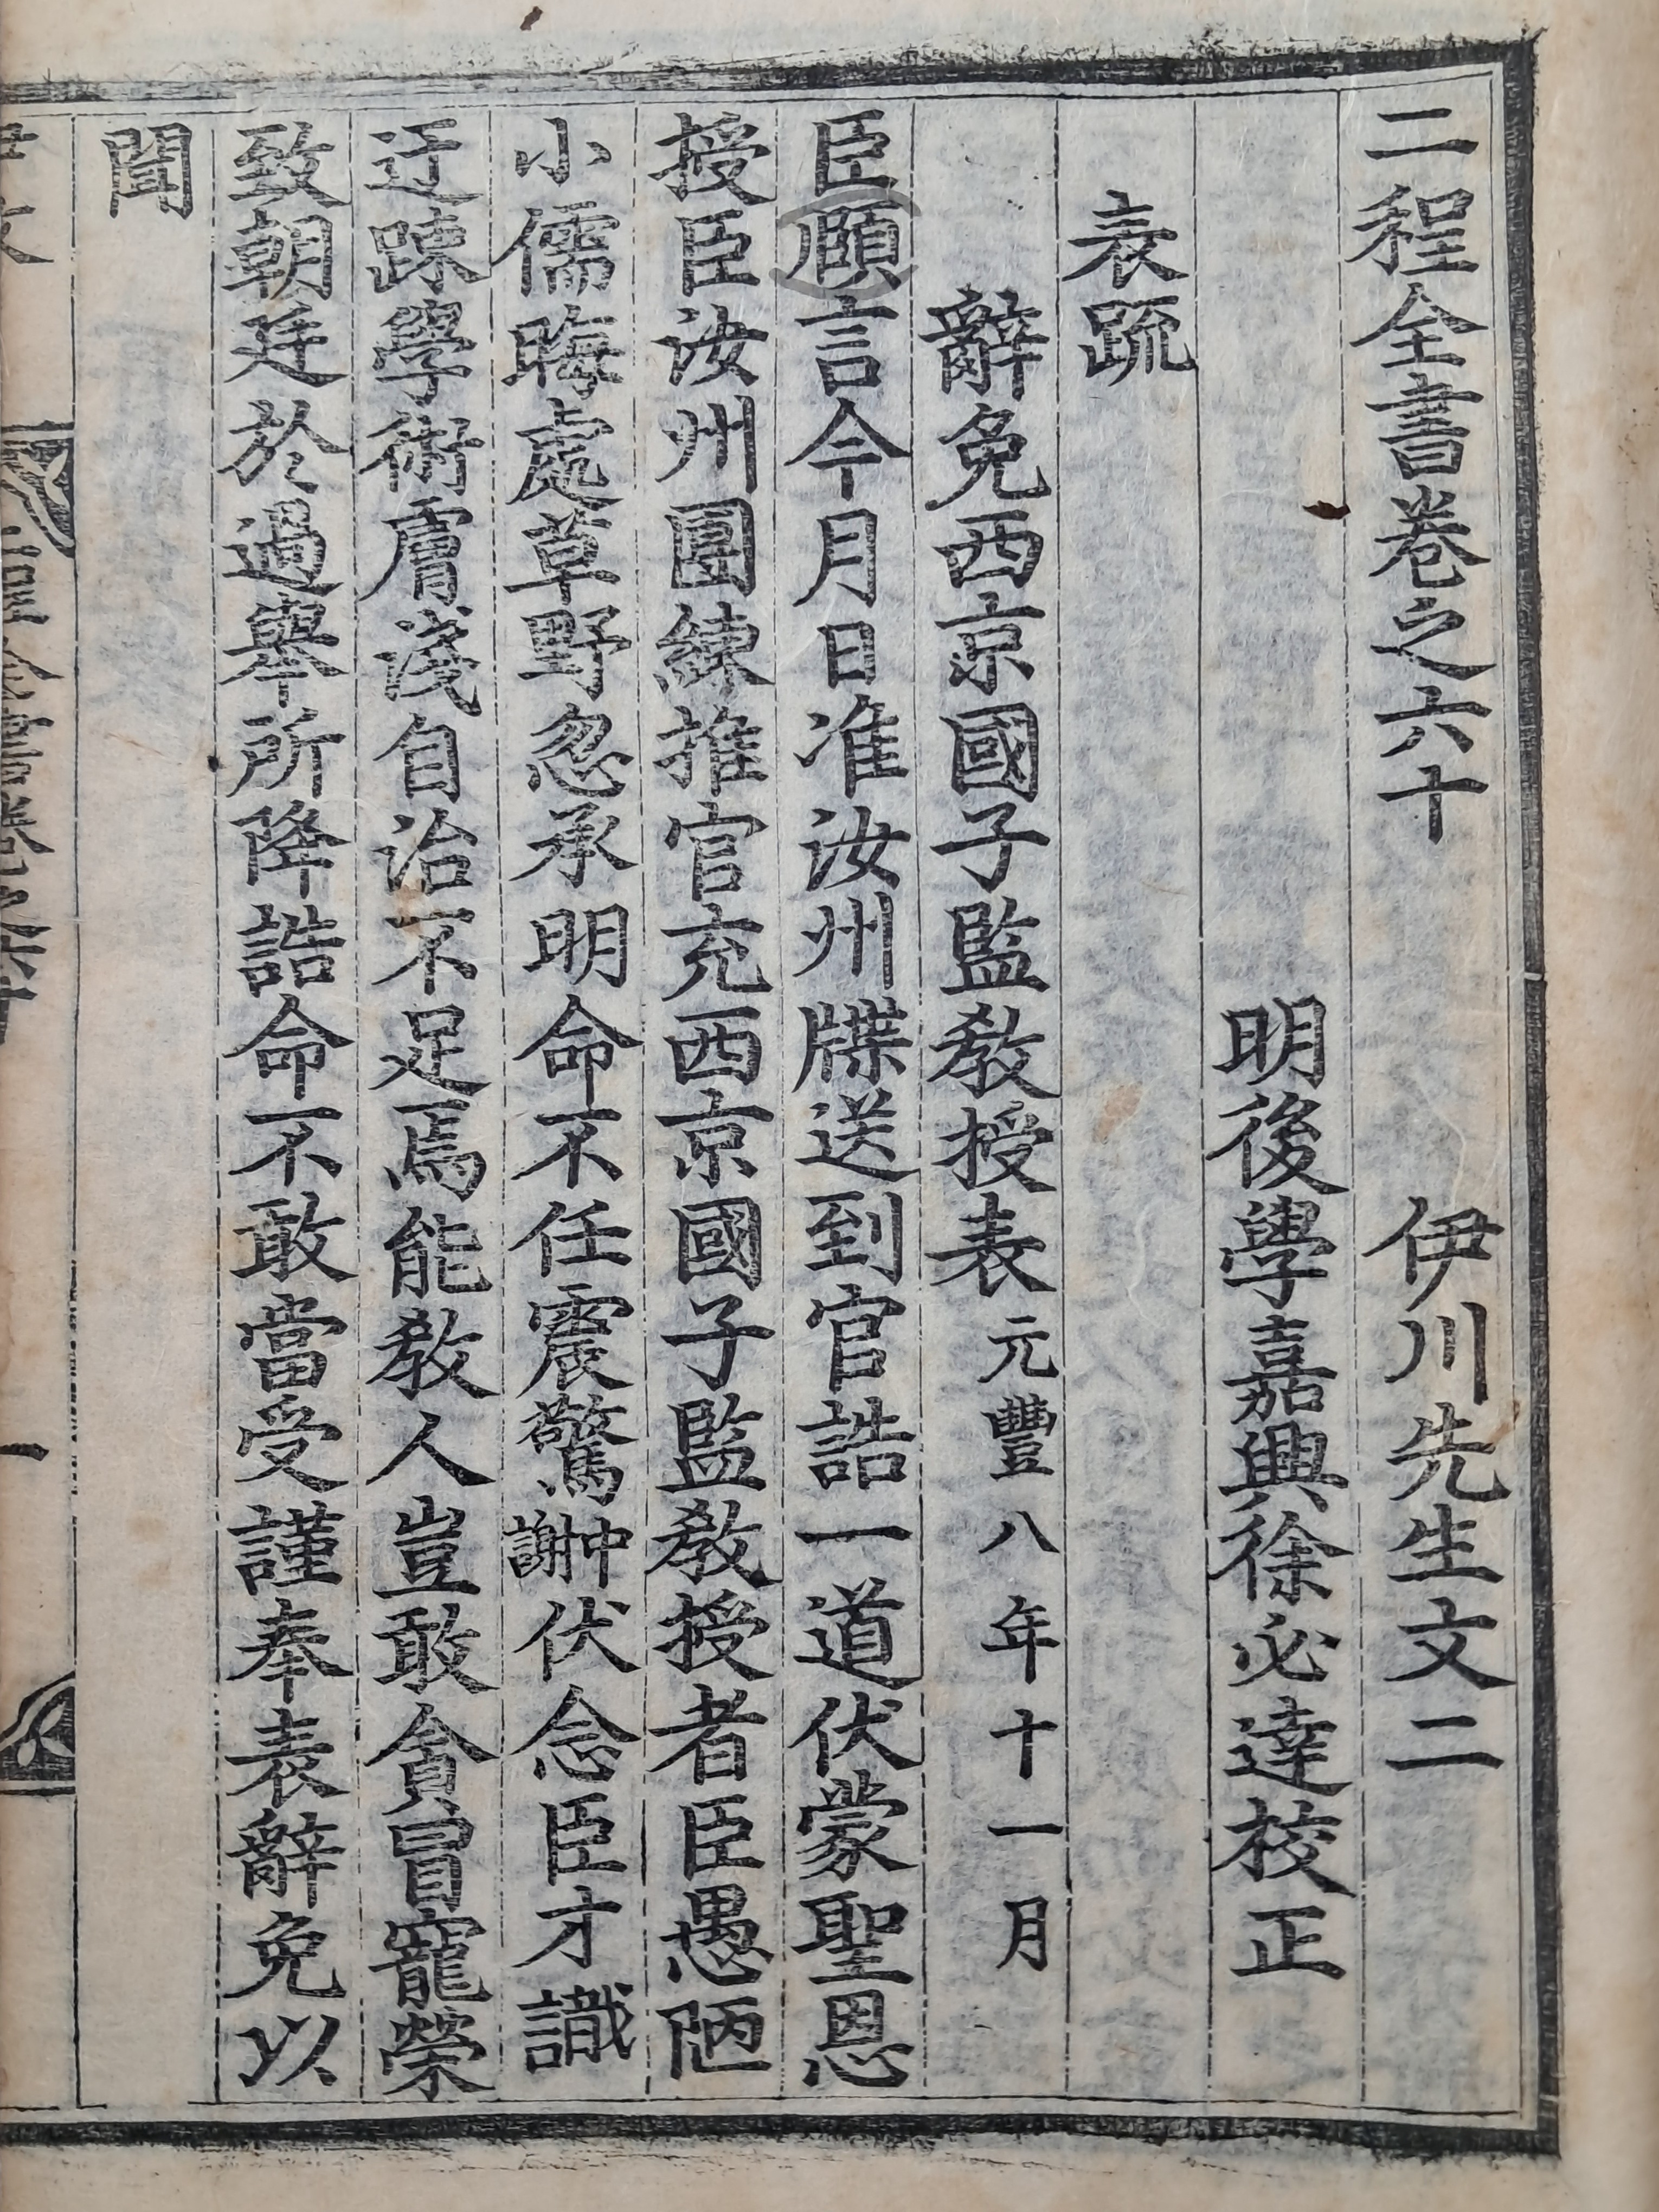 二程全書卷之六十　伊川先生文二
明後學嘉興徐必達校正
表疏
辭免西京國子監敎授表元豐八年十一月
臣頤言今月日准汝州牒送到官誥一道伏蒙聖恩
授臣汝州團練推官充西京國子監敎授者臣愚陋
小儒晦處草野忽承明命不任震驚中謝伏念臣才識
迂踈學術膚淺自治不足焉能敎人豈敢貪冒寵榮
致朝廷於過擧所降誥命不敢當受謹奉表辭免以
聞